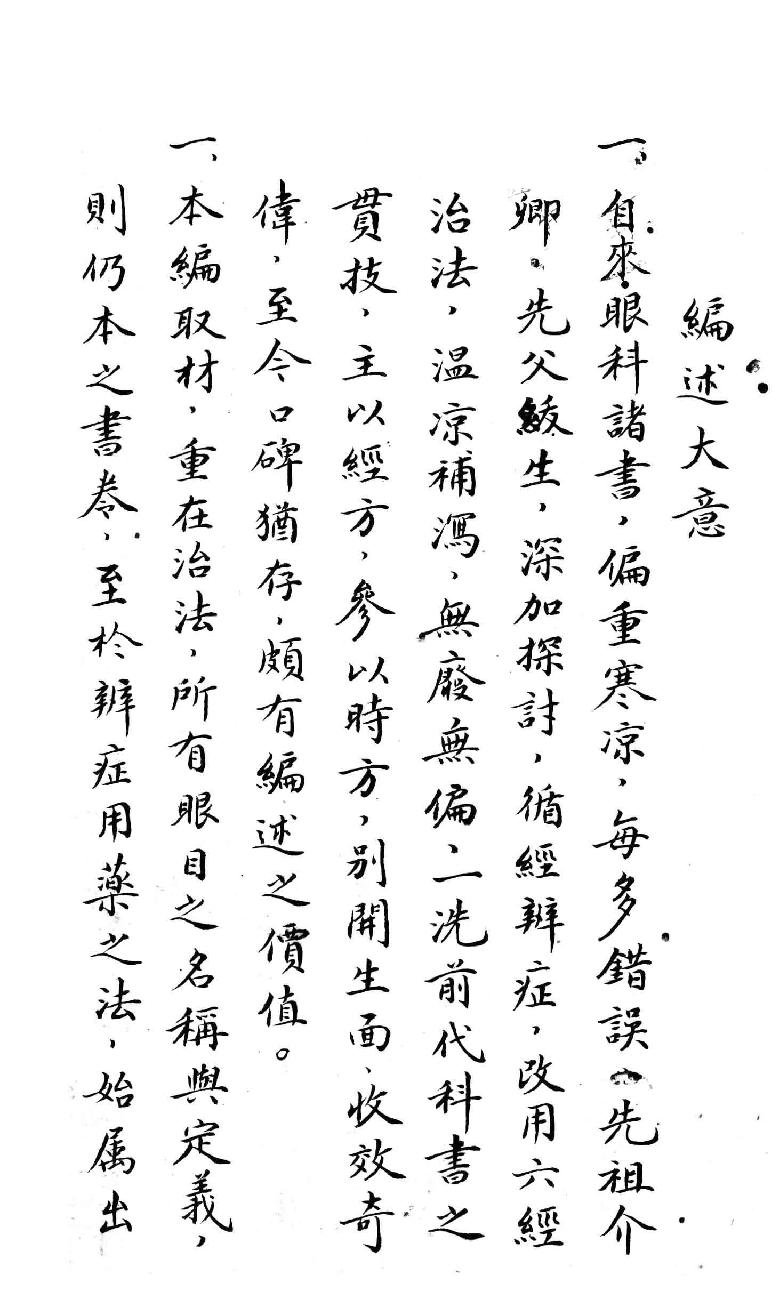 編述大意
一、自來眼科諸書，偏重寒凉，每多錯誤。先祖介
卿。先父緩生，深加探討，循經辨症，改用六經
治法，溫凉補瀉，無廢無偏，一洗前代科書之
貫技，主以經方，參以時方，別開生面，收效奇
偉，至今口碑猶存，頗有編述之價值。
一、本編取材，重在治法，所有眼目之名稱與定義，
則仍本之書卷，至於辨症用藥之法，始属出